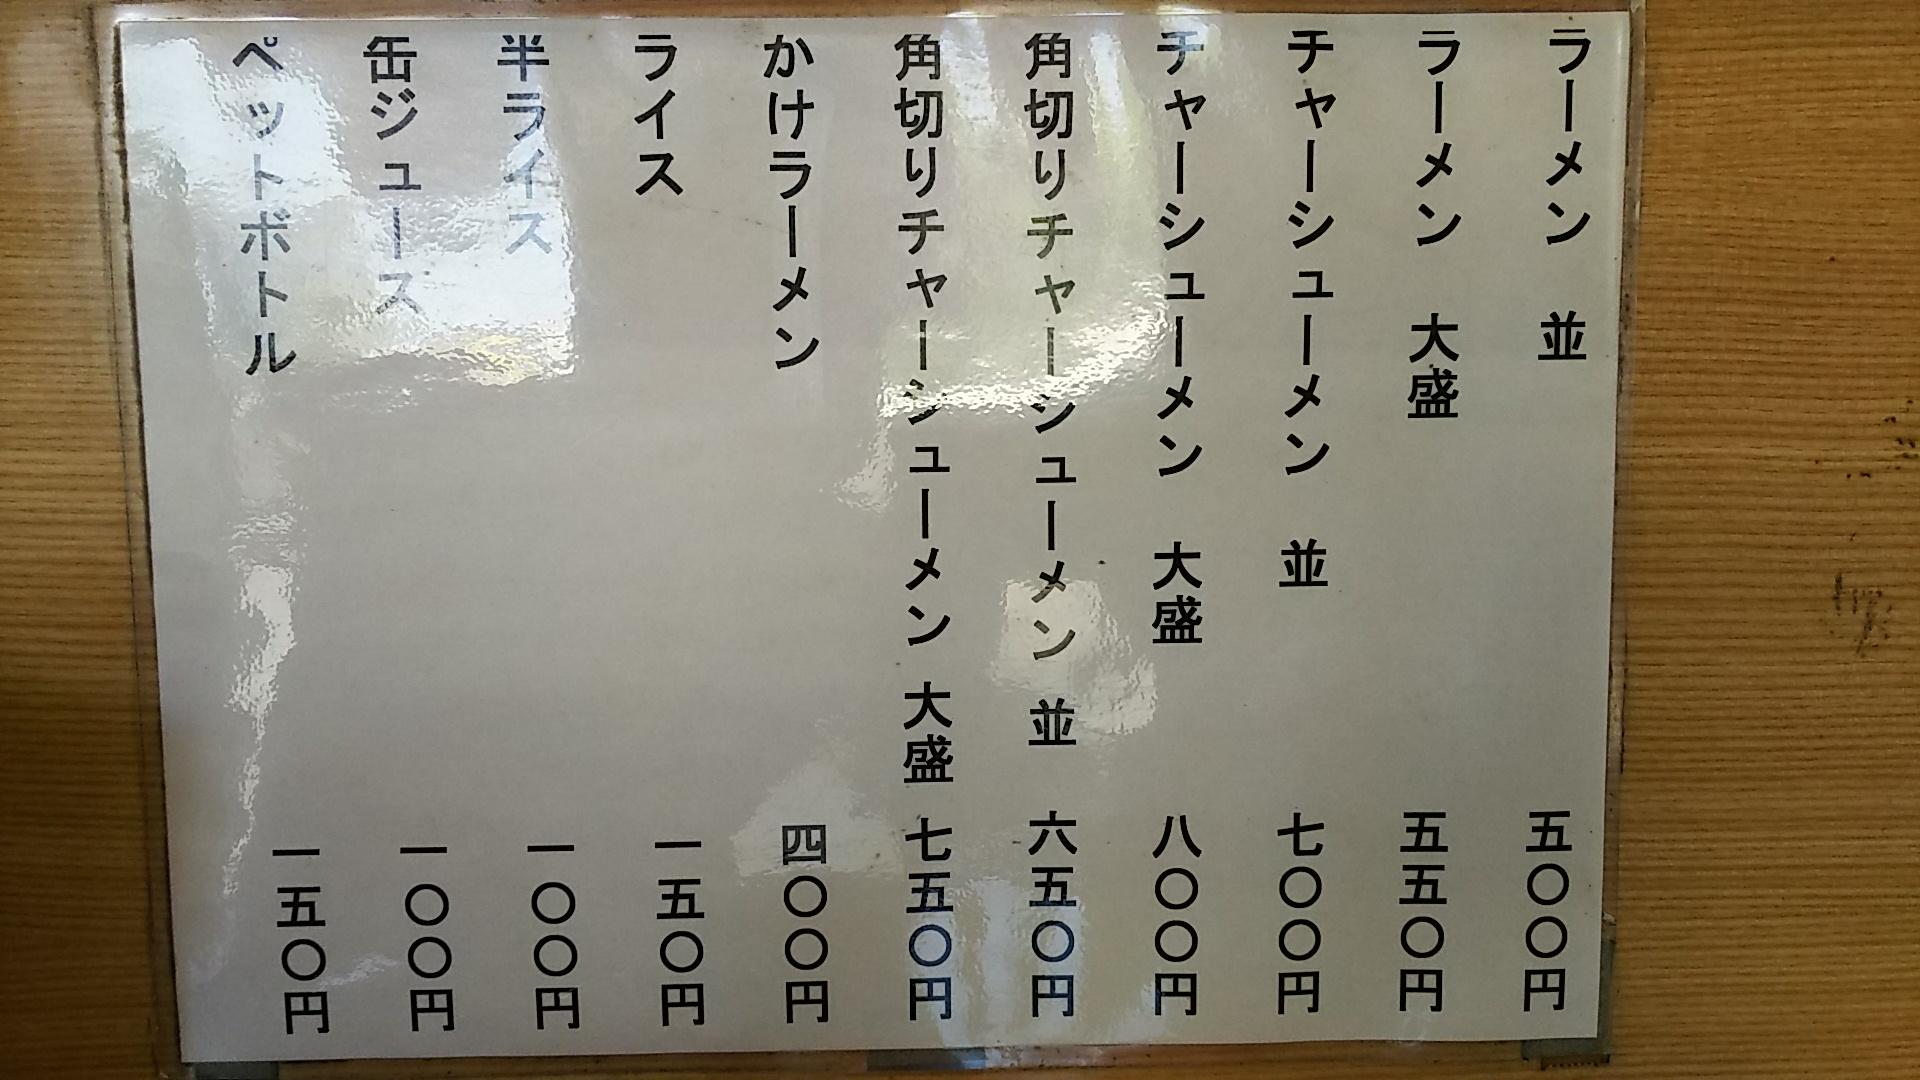 ラーメン 並 五〇〇円
ラーメン 大盛 五五〇円
チャーシューメン 並 七〇〇円
チャーシューメン 大盛 八〇〇円
角切りチャーシューメン 並 六五〇円
角切りチャーシューメン 大盛 七五〇円
かけラーメン 四〇〇円
ライス 一五〇円
半ライス 一〇〇円
缶ジュース 一〇〇円
ペットボトル 一五〇円